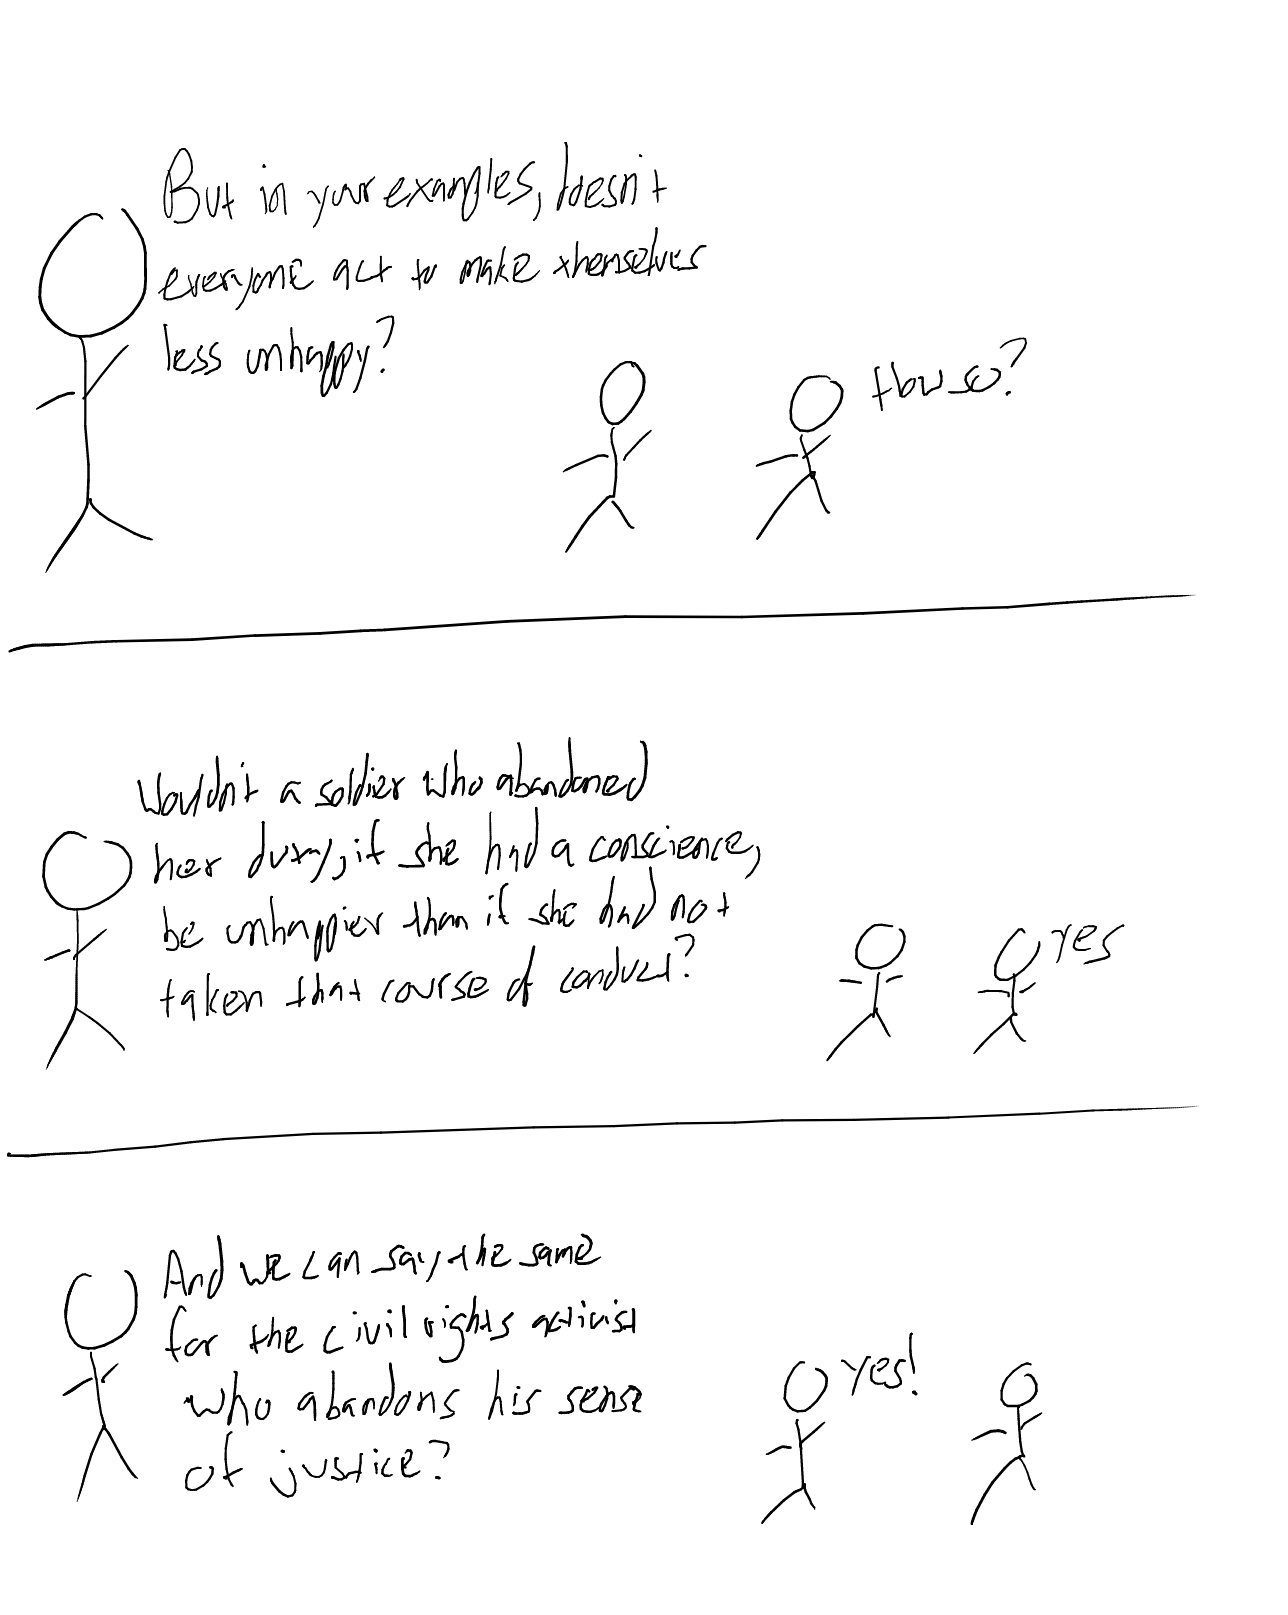 But in your examples, doesn't
everyone act to make themselves
less unhappy?
How so?
Wouldn't a soldier who abandoned
her duty, if she had a conscience,
be unhappier than if she had not
taken that course of conduct?
yes
And we can say the same
for the civil rights activist
who abandons his sense
of justice?
yes!